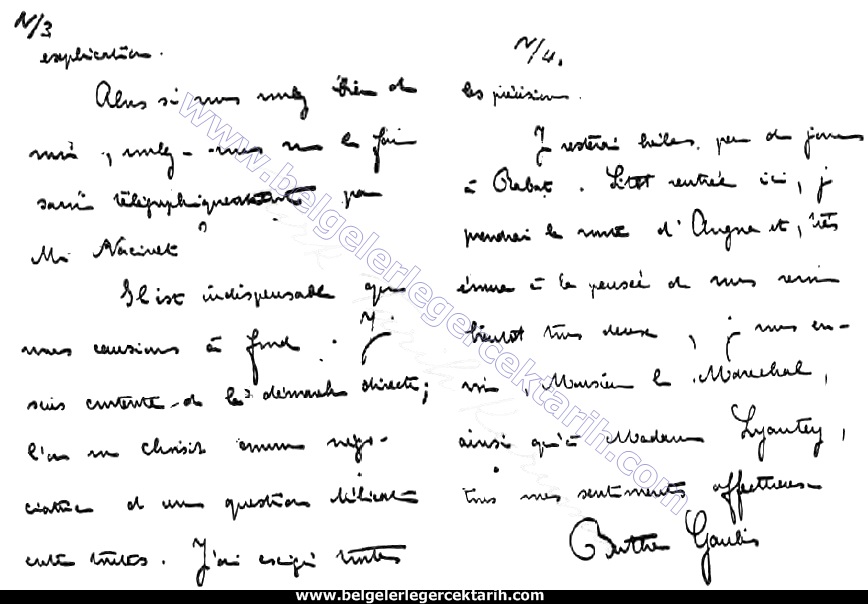 N/3
explication.
Alors si vous voulez bien de
moi, voulez-vous me le faire
savoir télégraphiquement par
Mr Nacivet
Il est indispensable que
nous causions à fond. Je
suis contente de la démarche directe;
l'on me choisit comme négo-
ciatrice d'une question délicate
entre toutes. J'ai exigé toutes
N/4.
les précisions.
Je resterai hélas, peu de jours
à Rabat. Sitôt rentrée ici, je
prendrai la route d'Angora et, très
émue à la pensée de vous revoir
bientôt tous deux, je vous en-
voie, Monsieur le Maréchal,
ainsi qu'à Madame Lyautey,
tous mes sentiments affectueux
Berthe Gaulis
www.belgelerlegercektarih.com
www.belgelerlegercektarih.com